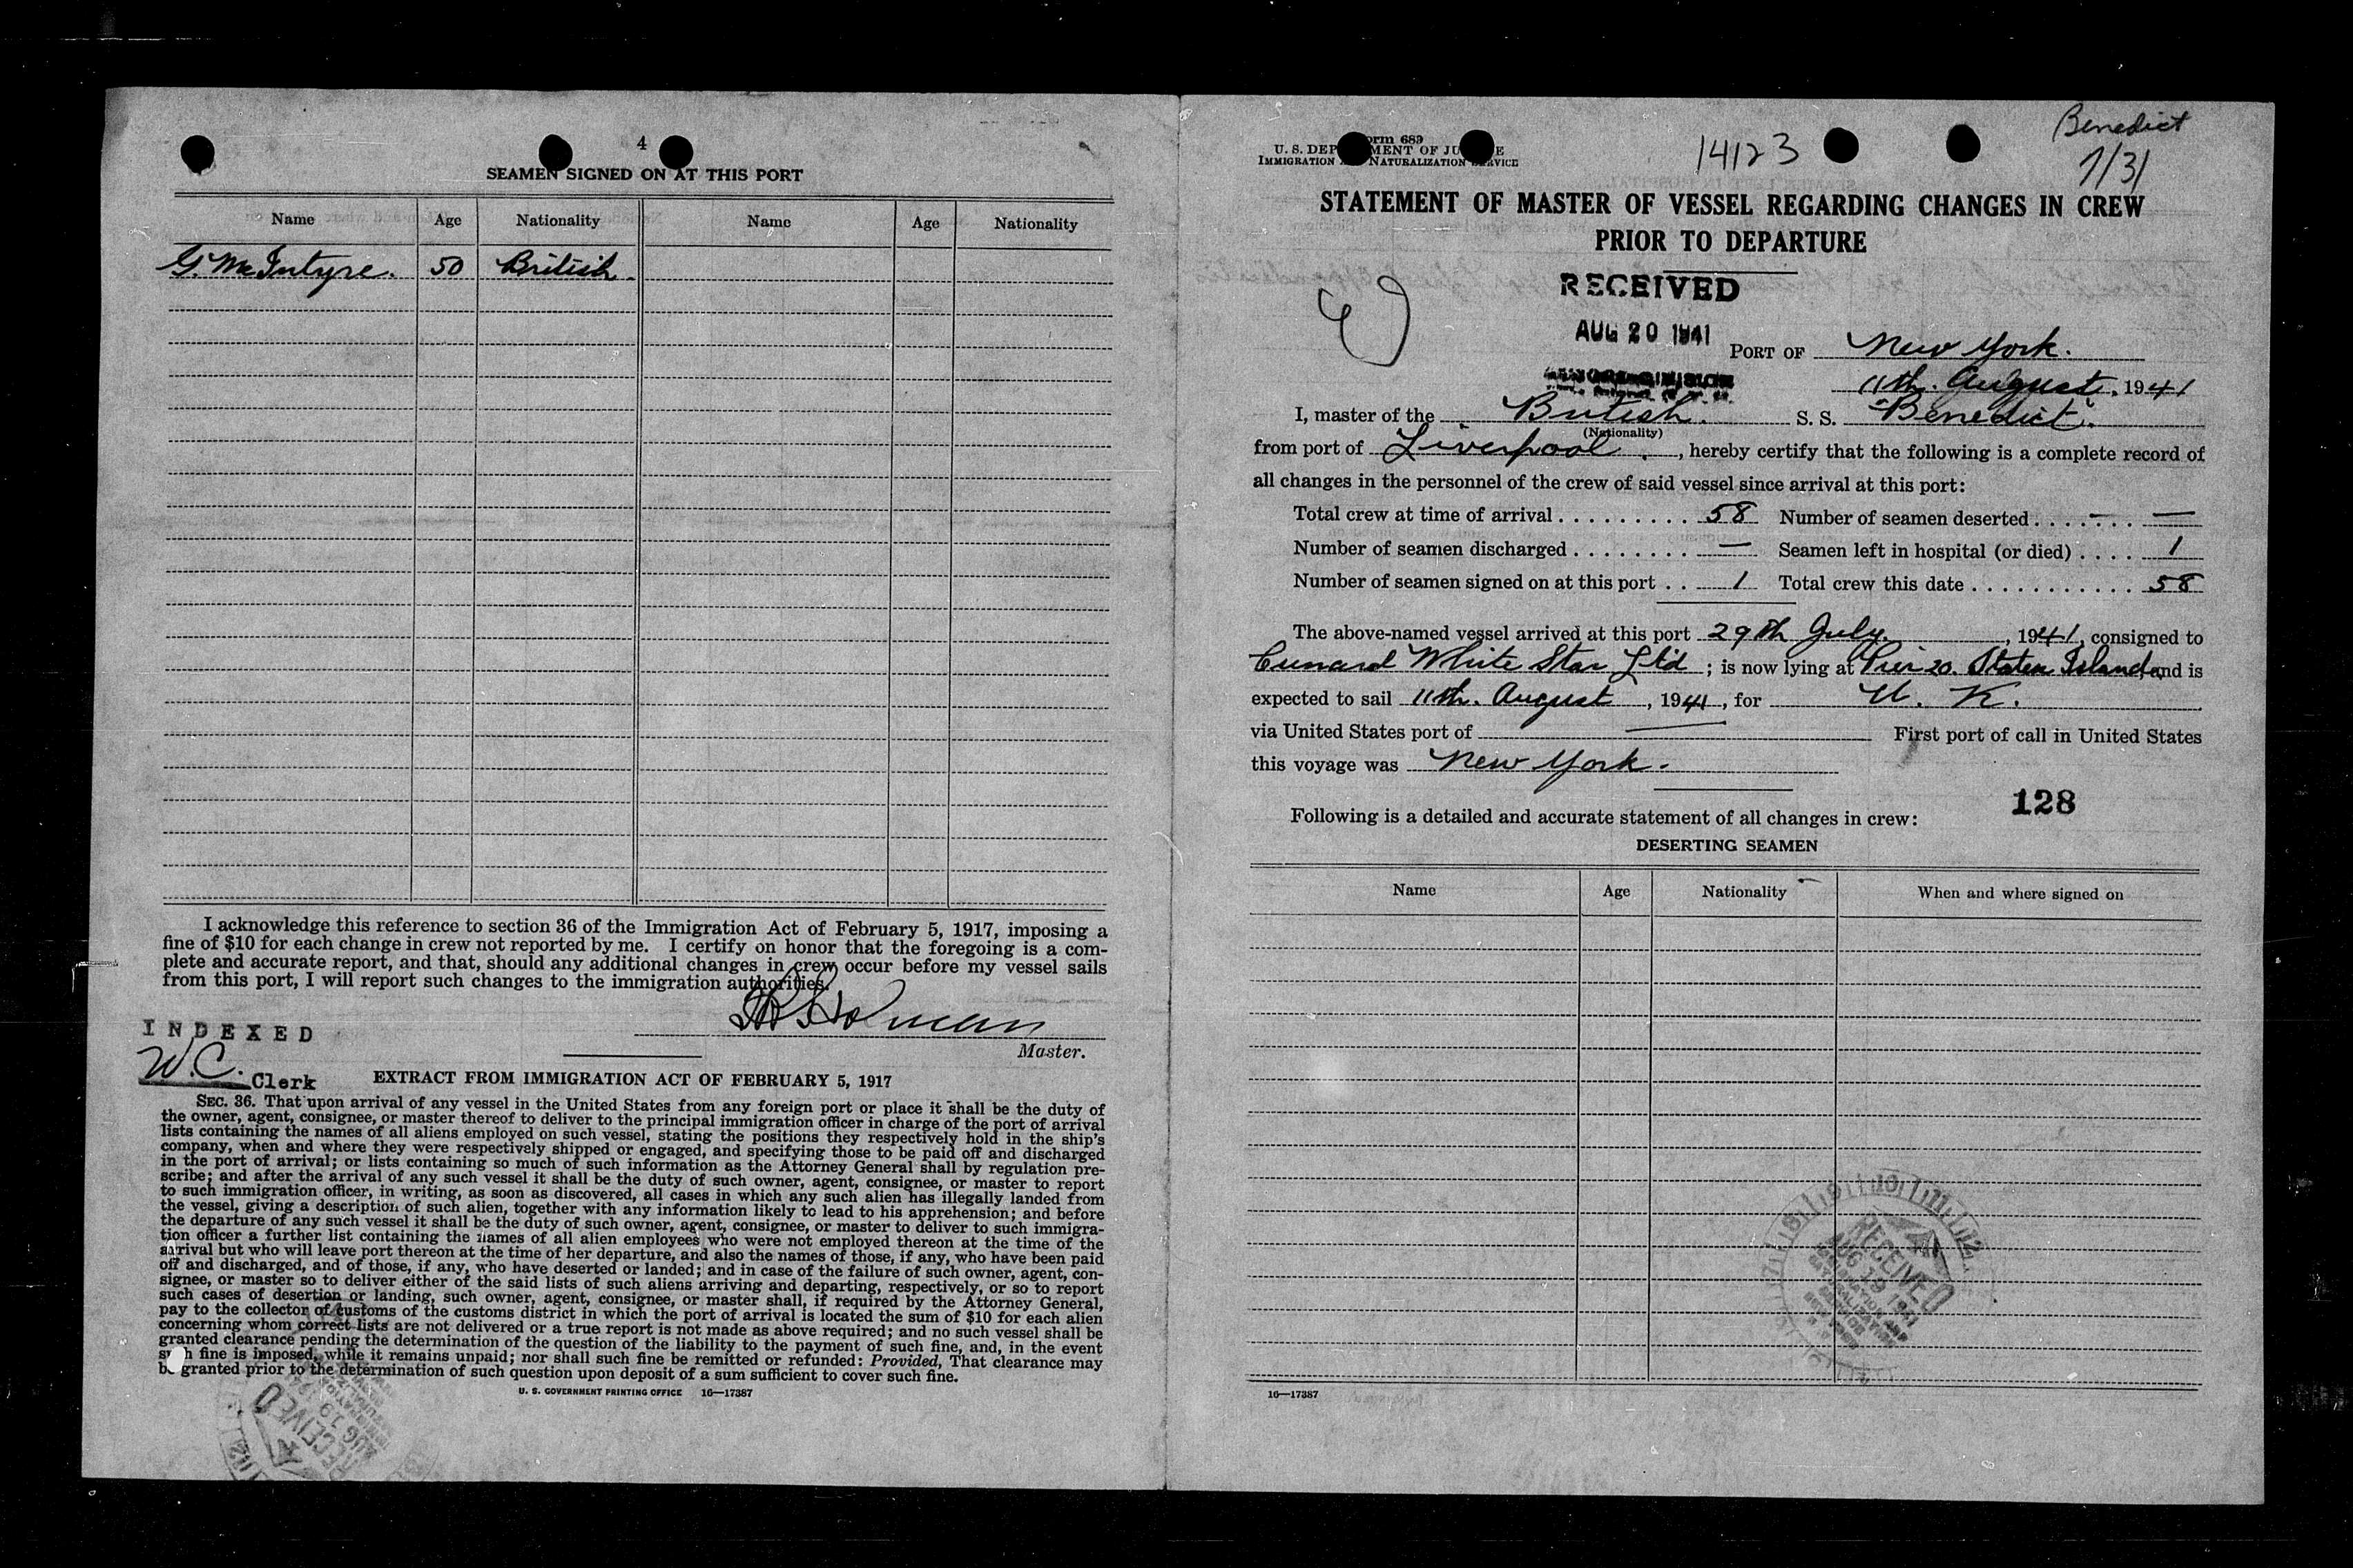 4
SEAMEN SIGNED ON AT THIS PORT
Name Age Nationality Name Age Nationality
G. McIntyre. 50 British.
I acknowledge this reference to section 36 of the Immigration Act of February 5, 1917, imposing a
fine of $10 for each change in crew not reported by me. I certify on honor that the foregoing is a com-
plete and accurate report, and that, should any additional changes in crew occur before my vessel sails
from this port, I will report such changes to the immigration authorities.
Master.
INDEXED
W.C. Clerk
EXTRACT FROM IMMIGRATION ACT OF FEBRUARY 5, 1917
SEC. 36. That upon arrival of any vessel in the United States from any foreign port or place it shall be the duty of
the owner, agent, consignee, or master thereof to deliver to the principal immigration officer in charge of the port of arrival
lists containing the names of all aliens employed on such vessel, stating the positions they respectively hold in the ship's
company, when and where they were respectively shipped or engaged, and specifying those to be paid off and discharged
in the port of arrival; or lists containing so much of such information as the Attorney General shall by regulation pre-
scribe; and after the arrival of any such vessel it shall be the duty of such owner, agent, consignee, or master to report
to such immigration officer, in writing, as soon as discovered, all cases in which any such alien has illegally landed from
the vessel, giving a description of such alien, together with any information likely to lead to his apprehension; and before
the departure of any such vessel it shall be the duty of such owner, agent, consignee, or master to deliver to such immigra-
tion officer a further list containing the names of all alien employees who were not employed thereon at the time of the
arrival but who will leave port thereon at the time of her departure, and also the names of those, if any, who have been paid
off and discharged, and of those, if any, who have deserted or landed; and in case of the failure of such owner, agent, con-
signee, or master so to deliver either of the said lists of such aliens arriving and departing, respectively, or so to report
such cases of desertion or landing, such owner, agent, consignee, or master shall, if required by the Attorney General,
pay to the collector of customs of the customs district in which the port of arrival is located the sum of $10 for each alien
concerning whom correct lists are not delivered or a true report is not made as above required; and no such vessel shall be
granted clearance pending the determination of the question of the liability to the payment of such fine, and, in the event
such fine is imposed, while it remains unpaid; nor shall such fine be remitted or refunded: Provided, That clearance may
be granted prior to the determination of such question upon deposit of a sum sufficient to cover such fine.
U. S. GOVERNMENT PRINTING OFFICE 16—17387
RECEIVED
AUG 19
Benedict
7/31
14123
Form 689
U. S. DEPARTMENT OF JUSTICE
IMMIGRATION AND NATURALIZATION SERVICE
STATEMENT OF MASTER OF VESSEL REGARDING CHANGES IN CREW
PRIOR TO DEPARTURE
RECEIVED
AUG 20 1941
PORT OF New York.
11th. August, 1941
I, master of the British. S. S. "Benedict".
(Nationality)
from port of Liverpool., hereby certify that the following is a complete record of
all changes in the personnel of the crew of said vessel since arrival at this port:
Total crew at time of arrival . . . . . . . . . 58 Number of seamen deserted . . . . . . . —
Number of seamen discharged . . . . . . . . — Seamen left in hospital (or died) . . . . 1
Number of seamen signed on at this port . . 1 Total crew this date . . . . . . . . . . . . 58
The above-named vessel arrived at this port 29th July., 1941, consigned to
Cunard White Star Ltd ; is now lying at Pier 20. Staten Island, and is
expected to sail 11th. August, 1941, for U. K.
via United States port of — First port of call in United States
this voyage was New York.
128
Following is a detailed and accurate statement of all changes in crew:
DESERTING SEAMEN
Name Age Nationality When and where signed on
RECEIVED
AUG 19 1941
16—17387